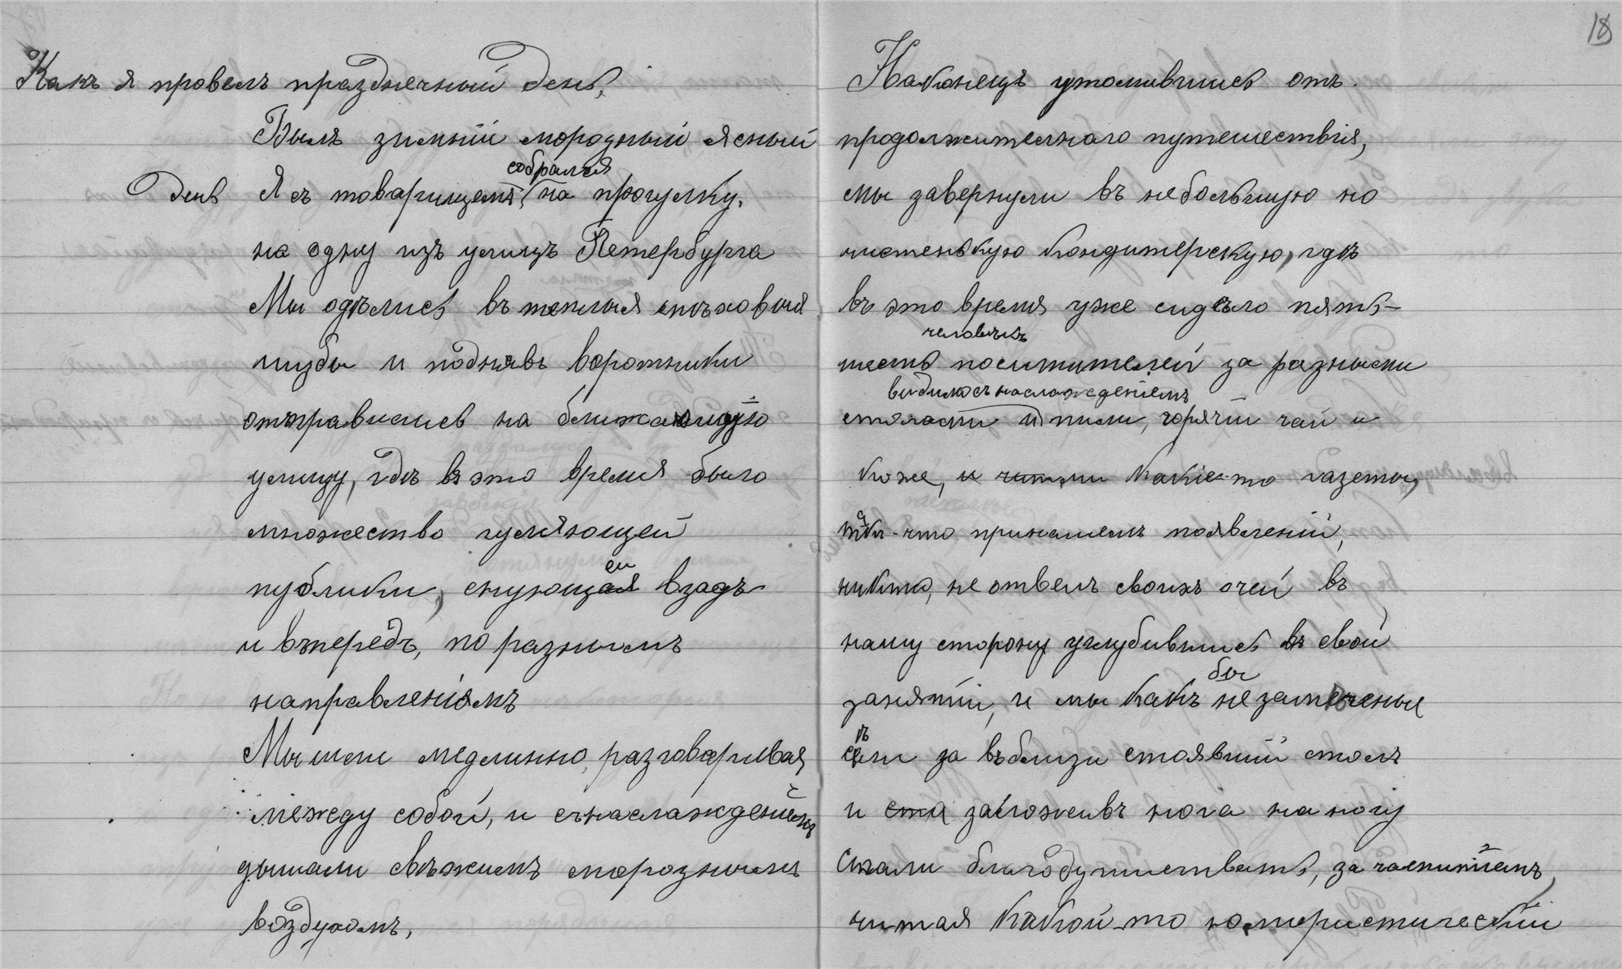 Какъ я провелъ праздничный день.
Былъ зимній морозный ясный
день Я съ товарищемъ собрался на прогулку.
на одну изъ улицъ Петербурга
Мы одѣлись въ теплыя мѣховыя
шубы и поднявъ воротники
отправились на ближайшую
улицу, гдѣ въ это время было
множество гуляющей
публики, снующей взадъ
и впередъ, по разнымъ
направленіямъ
Мы шли медлинно, разговаривая
между собой, и съ наслажденіемъ
дышали свѣжимъ морознымъ
воздухомъ,
18
Наконецъ утомившись отъ
продолжительнаго путешествія,
мы завернули въ небольшую но
чистенькую кондитерскую, гдѣ
въ это время уже сидѣло пять-
шесть человѣкъ посититилей за разными
столами и видимо съ наслажденіемъ пили, горячій чай и
кофе, и читали какіе-то газеты,
такъ-что при нашемъ появленіи,
никто, не отвелъ своихъ очей въ
нашу сторону углубившись въ свои
занятіи, и мы какъ бы не замѣченые
сѣли за въблизи стоявшій столъ
и заложивъ нога на ногу
стали благодушствать, за чаепитіемъ,
читая какой-то юмористическій